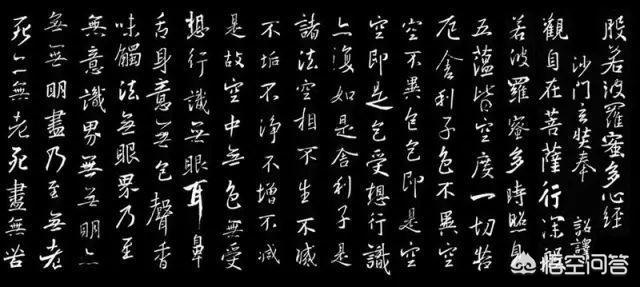 般若波羅蜜多心經
沙門玄奘奉 詔譯
觀自在菩薩行深般
若波羅蜜多時照見
五蘊皆空度一切苦
厄舍利子色不異空
空不異色色即是空
空即是色受想行識
亦復如是舍利子是
諸法空相不生不滅
不垢不淨不增不減
是故空中無色無受
想行識無眼耳鼻
舌身意無色聲香
味觸法無眼界乃至
無意識界無無明亦
無無明盡乃至無老
死亦無老死盡無苦
悟空问答